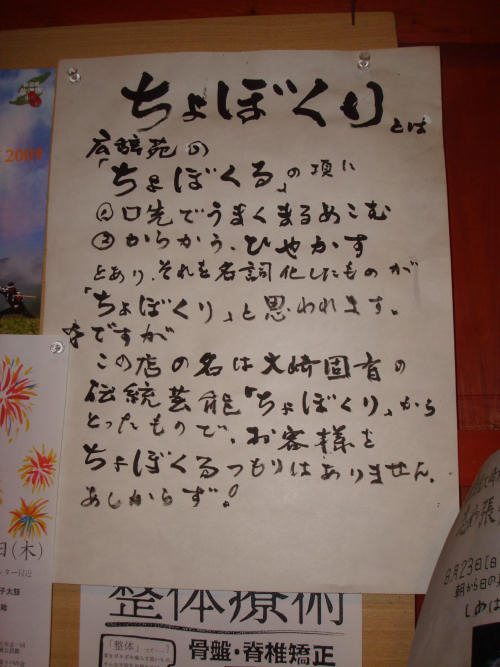 ちょぼくりとは
広辞苑の
「ちょぼくる」の項に
①口先でうまくまるめこむ
②からかう、ひやかす
とあり、それを名詞化したものが
「ちょぼくり」と思われます。
ですが
この店の名は大崎固有の
伝統芸能「ちょぼくり」から
とったもので、お客様を
ちょぼくるつもりはありません。
あしからず!
2009
日(木)
整体療術
「整体」って…?
骨盤・脊椎矯正
8月23日(日
朝から日の
しめは